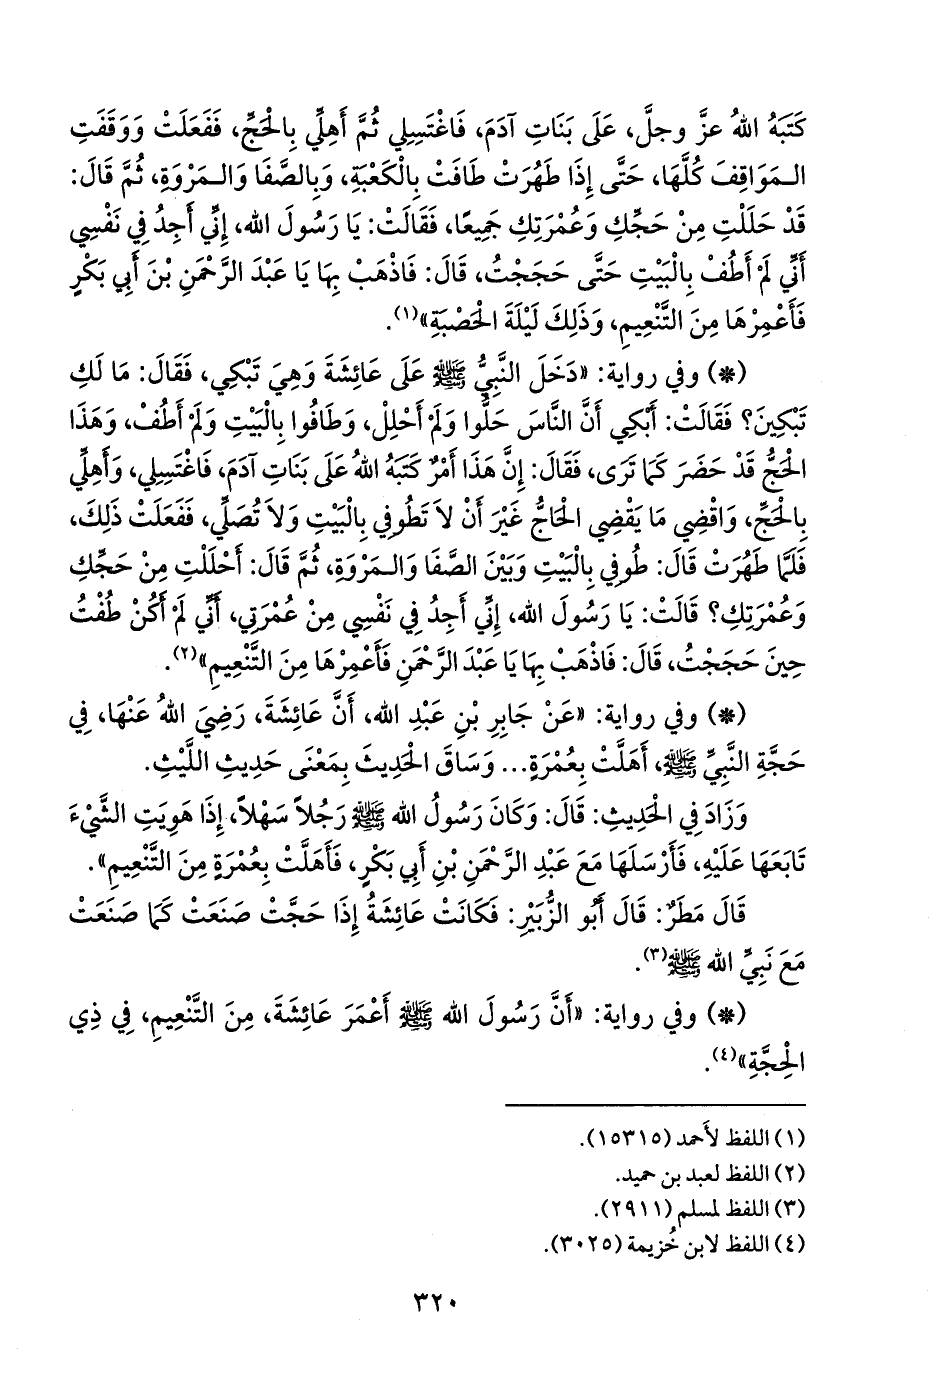 كَتَبَهُ اللهُ عزَّ وجلَّ، عَلَى بَنَاتِ آدَمَ، فَاغْتَسِلِي ثُمَّ أَهِلِّي بِالْحَجِّ، فَفَعَلَتْ وَوَقَفَتِ
الـمَوَاقِفَ كُلَّهَا، حَتَّى إِذَا طَهُرَتْ طَافَتْ بِالْكَعْبَةِ، وَبِالصَّفَا وَالـمَرْوَةِ، ثُمَّ قَالَ:
قَدْ حَلَلْتِ مِنْ حَجِّكِ وَعُمْرَتِكِ جَمِيعًا، فَقَالَتْ: يَا رَسُولَ الله، إِنِّي أَجِدُ فِي نَفْسِي
أَنِّي لَمْ أَطُفْ بِالْبَيْتِ حَتَّى حَجَجْتُ، قَالَ: فَاذْهَبْ بِهَا يَا عَبْدَ الرَّحْمَنِ بْنَ أَبِي بَكْرٍ
فَأَعْمِرْهَا مِنَ التَّنْعِيمِ، وَذَلِكَ لَيْلَةَ الْحَصْبَةِ»(١).
(*) وفي رواية: «دَخَلَ النَّبِيُّ ﷺ عَلَى عَائِشَةَ وَهِيَ تَبْكِي، فَقَالَ: مَا لَكِ
تَبْكِينَ؟ فَقَالَتْ: أَبْكِي أَنَّ النَّاسَ حَلُّوا وَلَمْ أَحْلِلْ، وَطَافُوا بِالْبَيْتِ وَلَمْ أَطُفْ، وَهَذَا
الْحَجُّ قَدْ حَضَرَ كَمَا تَرَى، فَقَالَ: إِنَّ هَذَا أَمْرٌ كَتَبَهُ اللهُ عَلَى بَنَاتِ آدَمَ، فَاغْتَسِلِي، وَأَهِلِّي
بِالْحَجِّ، وَاقْضِي مَا يَقْضِي الْحَاجُّ غَيْرَ أَنْ لاَ تَطُوفِي بِالْبَيْتِ وَلاَ تُصَلِّي، فَفَعَلَتْ ذَلِكَ،
فَلَمَّا طَهُرَتْ قَالَ: طُوفِي بِالْبَيْتِ وَبَيْنَ الصَّفَا وَالـمَرْوَةِ، ثُمَّ قَالَ: أَحْلَلْتِ مِنْ حَجِّكِ
وَعُمْرَتِكِ؟ قَالَتْ: يَا رَسُولَ الله، إِنِّي أَجِدُ فِي نَفْسِي مِنْ عُمْرَتِي، أَنِّي لَمْ أَكُنْ طُفْتُ
حِينَ حَجَجْتُ، قَالَ: فَاذْهَبْ بِهَا يَا عَبْدَ الرَّحْمَنِ فَأَعْمِرْهَا مِنَ التَّنْعِيمِ»(٢).
(*) وفي رواية: «عَنْ جَابِرِ بْنِ عَبْدِ الله، أَنَّ عَائِشَةَ، رَضِيَ اللهُ عَنْهَا، فِي
حَجَّةِ النَّبِيِّ ﷺ، أَهَلَّتْ بِعُمْرَةٍ... وَسَاقَ الْحَدِيثَ بِمَعْنَى حَدِيثِ اللَّيْثِ.
وَزَادَ فِي الْحَدِيثِ: قَالَ: وَكَانَ رَسُولُ الله ﷺ رَجُلاً سَهْلاً، إِذَا هَوِيَتِ الشَّيْءَ
تَابَعَهَا عَلَيْهِ، فَأَرْسَلَهَا مَعَ عَبْدِ الرَّحْمَنِ بْنِ أَبِي بَكْرٍ، فَأَهَلَّتْ بِعُمْرَةٍ مِنَ التَّنْعِيمِ».
قَالَ مَطَرٌ: قَالَ أَبُو الزُّبَيْرِ: فَكَانَتْ عَائِشَةُ إِذَا حَجَّتْ صَنَعَتْ كَمَا صَنَعَتْ
مَعَ نَبِيِّ الله ﷺ(٣).
(*) وفي رواية: «أَنَّ رَسُولَ الله ﷺ أَعْمَرَ عَائِشَةَ، مِنَ التَّنْعِيمِ، فِي ذِي
الْحِجَّةِ»(٤).
(١) اللفظ لأَحمد (١٥٣١٥).
(٢) اللفظ لعبد بن حميد.
(٣) اللفظ لمسلم (٢٩١١).
(٤) اللفظ لابن خُزيمة (٣٠٢٥).
٣٢٠